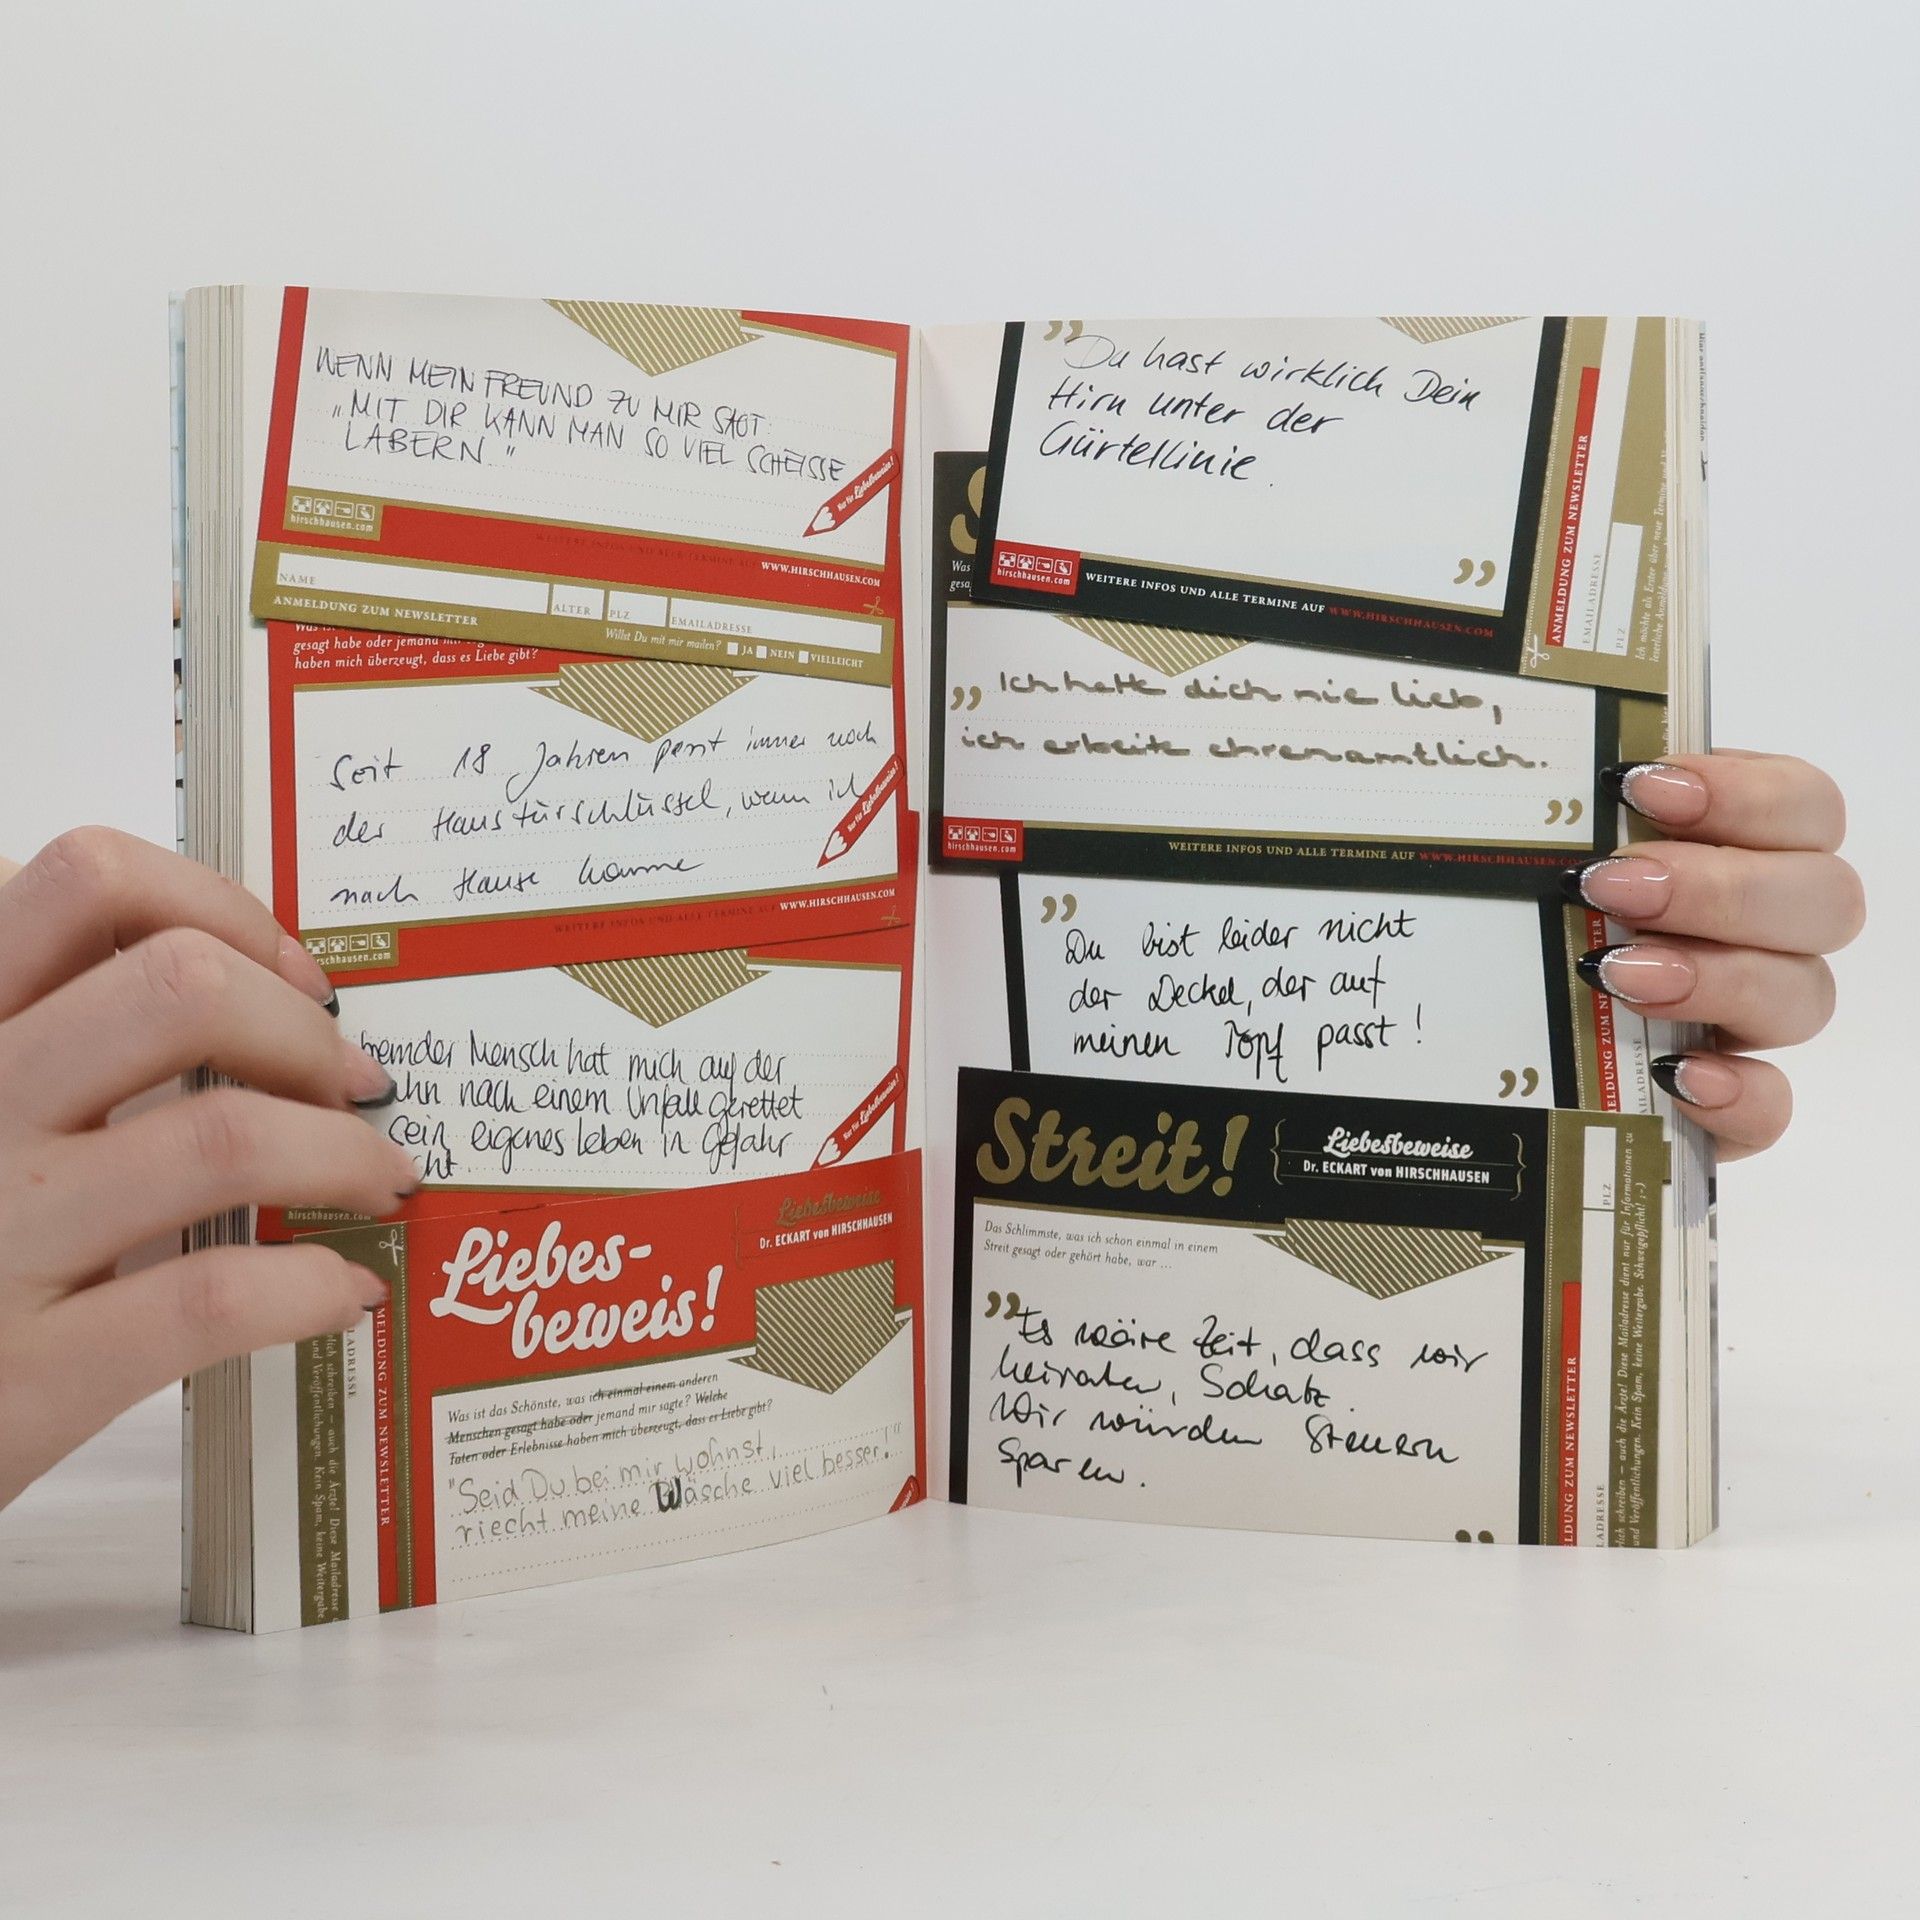 WENN MEIN FREUND ZU MIR SAGT:
„MIT DIR KANN MAN SO VIEL SCHEISSE
LABERN"
Nur für Liebesbeweise!
hirschhausen.com
WEITERE INFOS UND ALLE TERMINE AUF WWW.HIRSCHHAUSEN.COM
NAME
ALTER
PLZ
EMAILADRESSE
ANMELDUNG ZUM NEWSLETTER
Willst Du mit mir mailen? JA NEIN VIELLEICHT
gesagt habe oder jemand
haben mich überzeugt, dass es Liebe gibt?
Seit 18 Jahren passt immer noch
der Haustürschlüssel, wenn ich
nach Hause komme
Nur für Liebesbeweise!
WEITERE INFOS UND ALLE TERMINE AUF WWW.HIRSCHHAUSEN.COM
rschhausen.com
fremder Mensch hat mich auf der
ahn nach einem Unfall gerettet
sein eigenes Leben in Gefahr
cht.
Nur für Liebesbeweise!
hirschhausen.com
Liebes-
beweis!
Liebesbeweise
Dr. ECKART von HIRSCHHAUSEN
Was ist das Schönste, was ich einmal einem anderen
Menschen gesagt habe oder jemand mir sagte? Welche
Taten oder Erlebnisse haben mich überzeugt, dass es Liebe gibt?
"Seid Du bei mir wohnst,
riecht meine Wäsche viel besser!"
MELDUNG ZUM NEWSLETTER
LADRESSE
rlich schreiben – auch die Ärzte! Diese Mailadresse
und Veröffentlichungen. Kein Spam, keine Weitergabe.
”Du hast wirklich Dein
Hirn unter der
Gürtellinie.
”
hirschhausen.com
WEITERE INFOS UND ALLE TERMINE AUF WWW.HIRSCHHAUSEN.COM
ANMELDUNG ZUM NEWSLETTER
EMAILADRESSE
PLZ
Ich möchte als Erster über neue Termine und
Was
gesa
” Ich hatte dich nie lieb,
ich arbeite ehrenamtlich.
”
hirschhausen.com
WEITERE INFOS UND ALLE TERMINE AUF WWW.HIRSCHHAUSEN.CO
”
Du bist leider nicht
der Deckel, der auf
meinen Topf passt!
”
MELDUNG ZUM NEW
AILADRESSE
Streit!
Liebesbeweise
Dr. ECKART von HIRSCHHAUSEN
Das Schlimmste, was ich schon einmal in einem
Streit gesagt oder gehört habe, war ...
”Es wäre Zeit, dass wir
heiraten, Schatz.
Wir würden Steuern
sparen.
”
LDUNG ZUM NEWSLETTER
LADRESSE
PLZ
rlich schreiben – auch die Ärzte! Diese Mailadresse dient nur für Informationen zu
und Veröffentlichungen. Kein Spam, keine Weitergabe. Schweigepflicht! ;-)